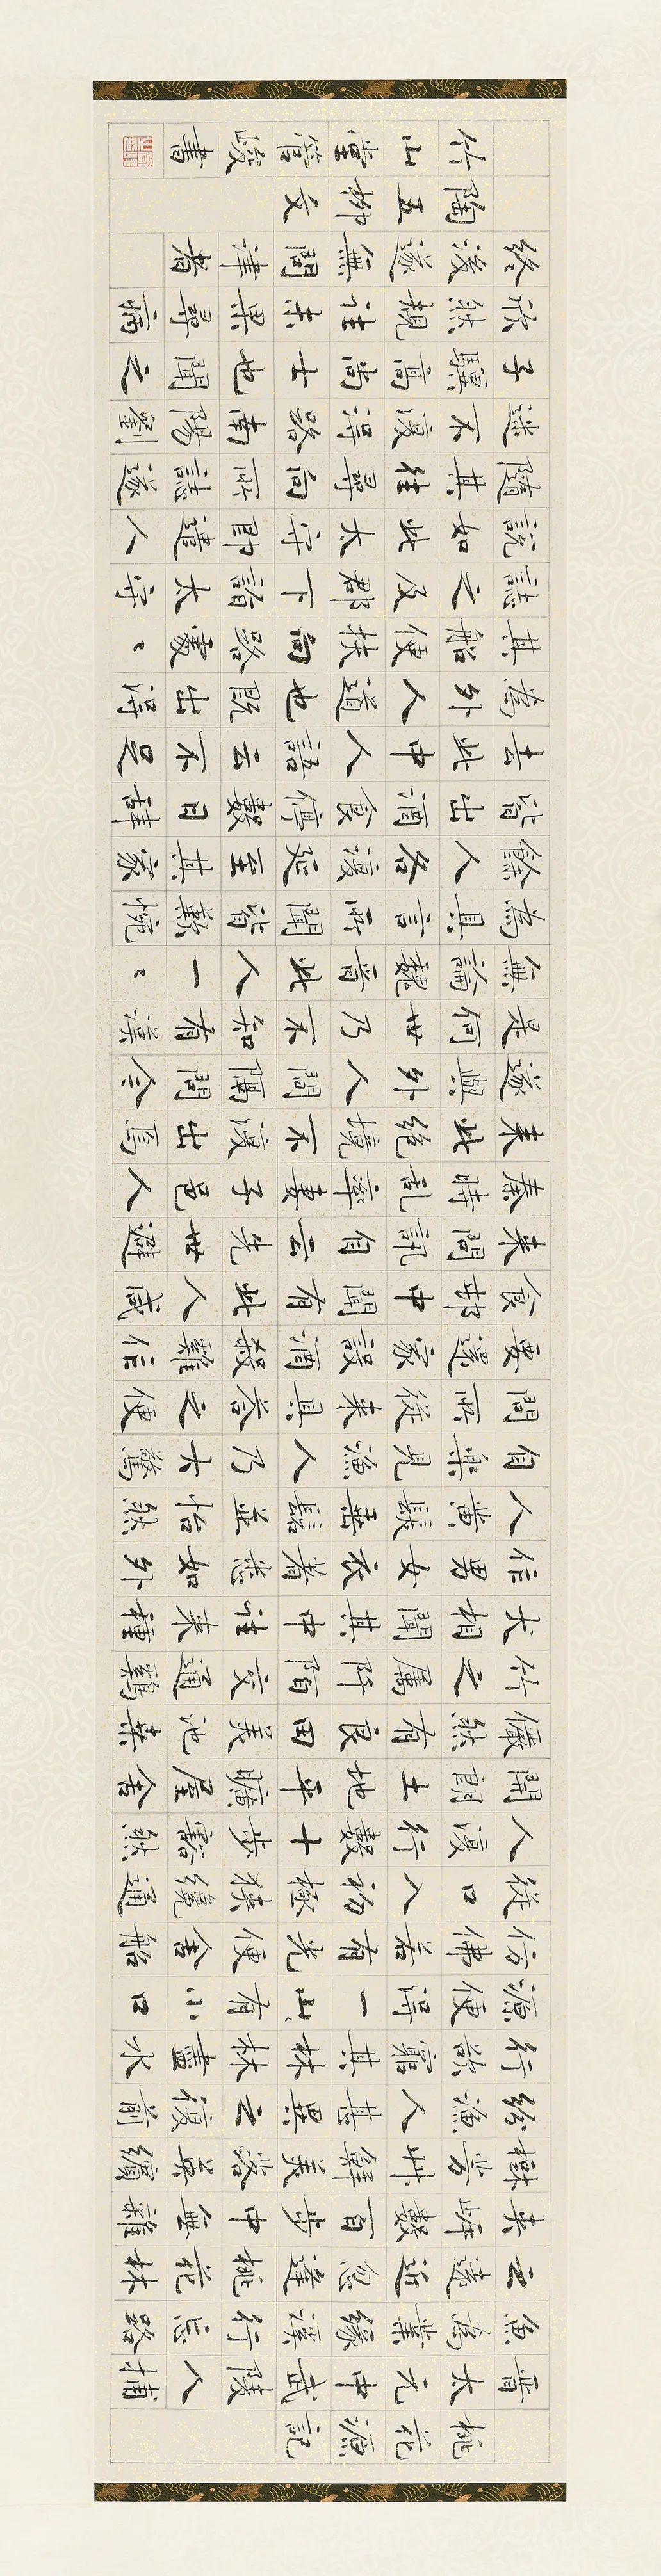 桃花源記
晉太元中武陵人捕
魚為業緣溪行忘路
之遠近忽逢桃花林
夾岸數百步中無雜
樹芳艸鮮美落英繽
紛漁人甚異之復前
行欲窮其林林盡水
源便得一山山有小口
仿佛若有光便舍船
從口入初極狹纔通
人復行數十步豁然
開朗土地平曠屋舍
儼然有良田美池桑
竹之屬阡陌交通鷄
犬相聞其中往來種
作男女衣著悉如外
人黃髮垂髫並怡然
自樂見漁人乃大驚
問所從來具答之便
要還家設酒殺雞作
食邨中聞有此人咸
來問訊自云先世避
秦時亂率妻子邑人
來此絕境不復出焉
遂與外人間隔問今
是何世乃不知有漢
無論魏晉此人一〻
為具言所聞皆歎惋
餘人各復延至其家
皆出酒食停數日辭
去此中人語云不足
為外人道也既出得
其船便扶向路處〻
誌之及郡下詣太守
說如此太守即遣人
隨其往尋向所誌遂
迷不復得路南陽劉
子驥高尚士也聞之
欣然規往未果尋病
終後遂無問津者
陶五柳文
竹山堂管峻書